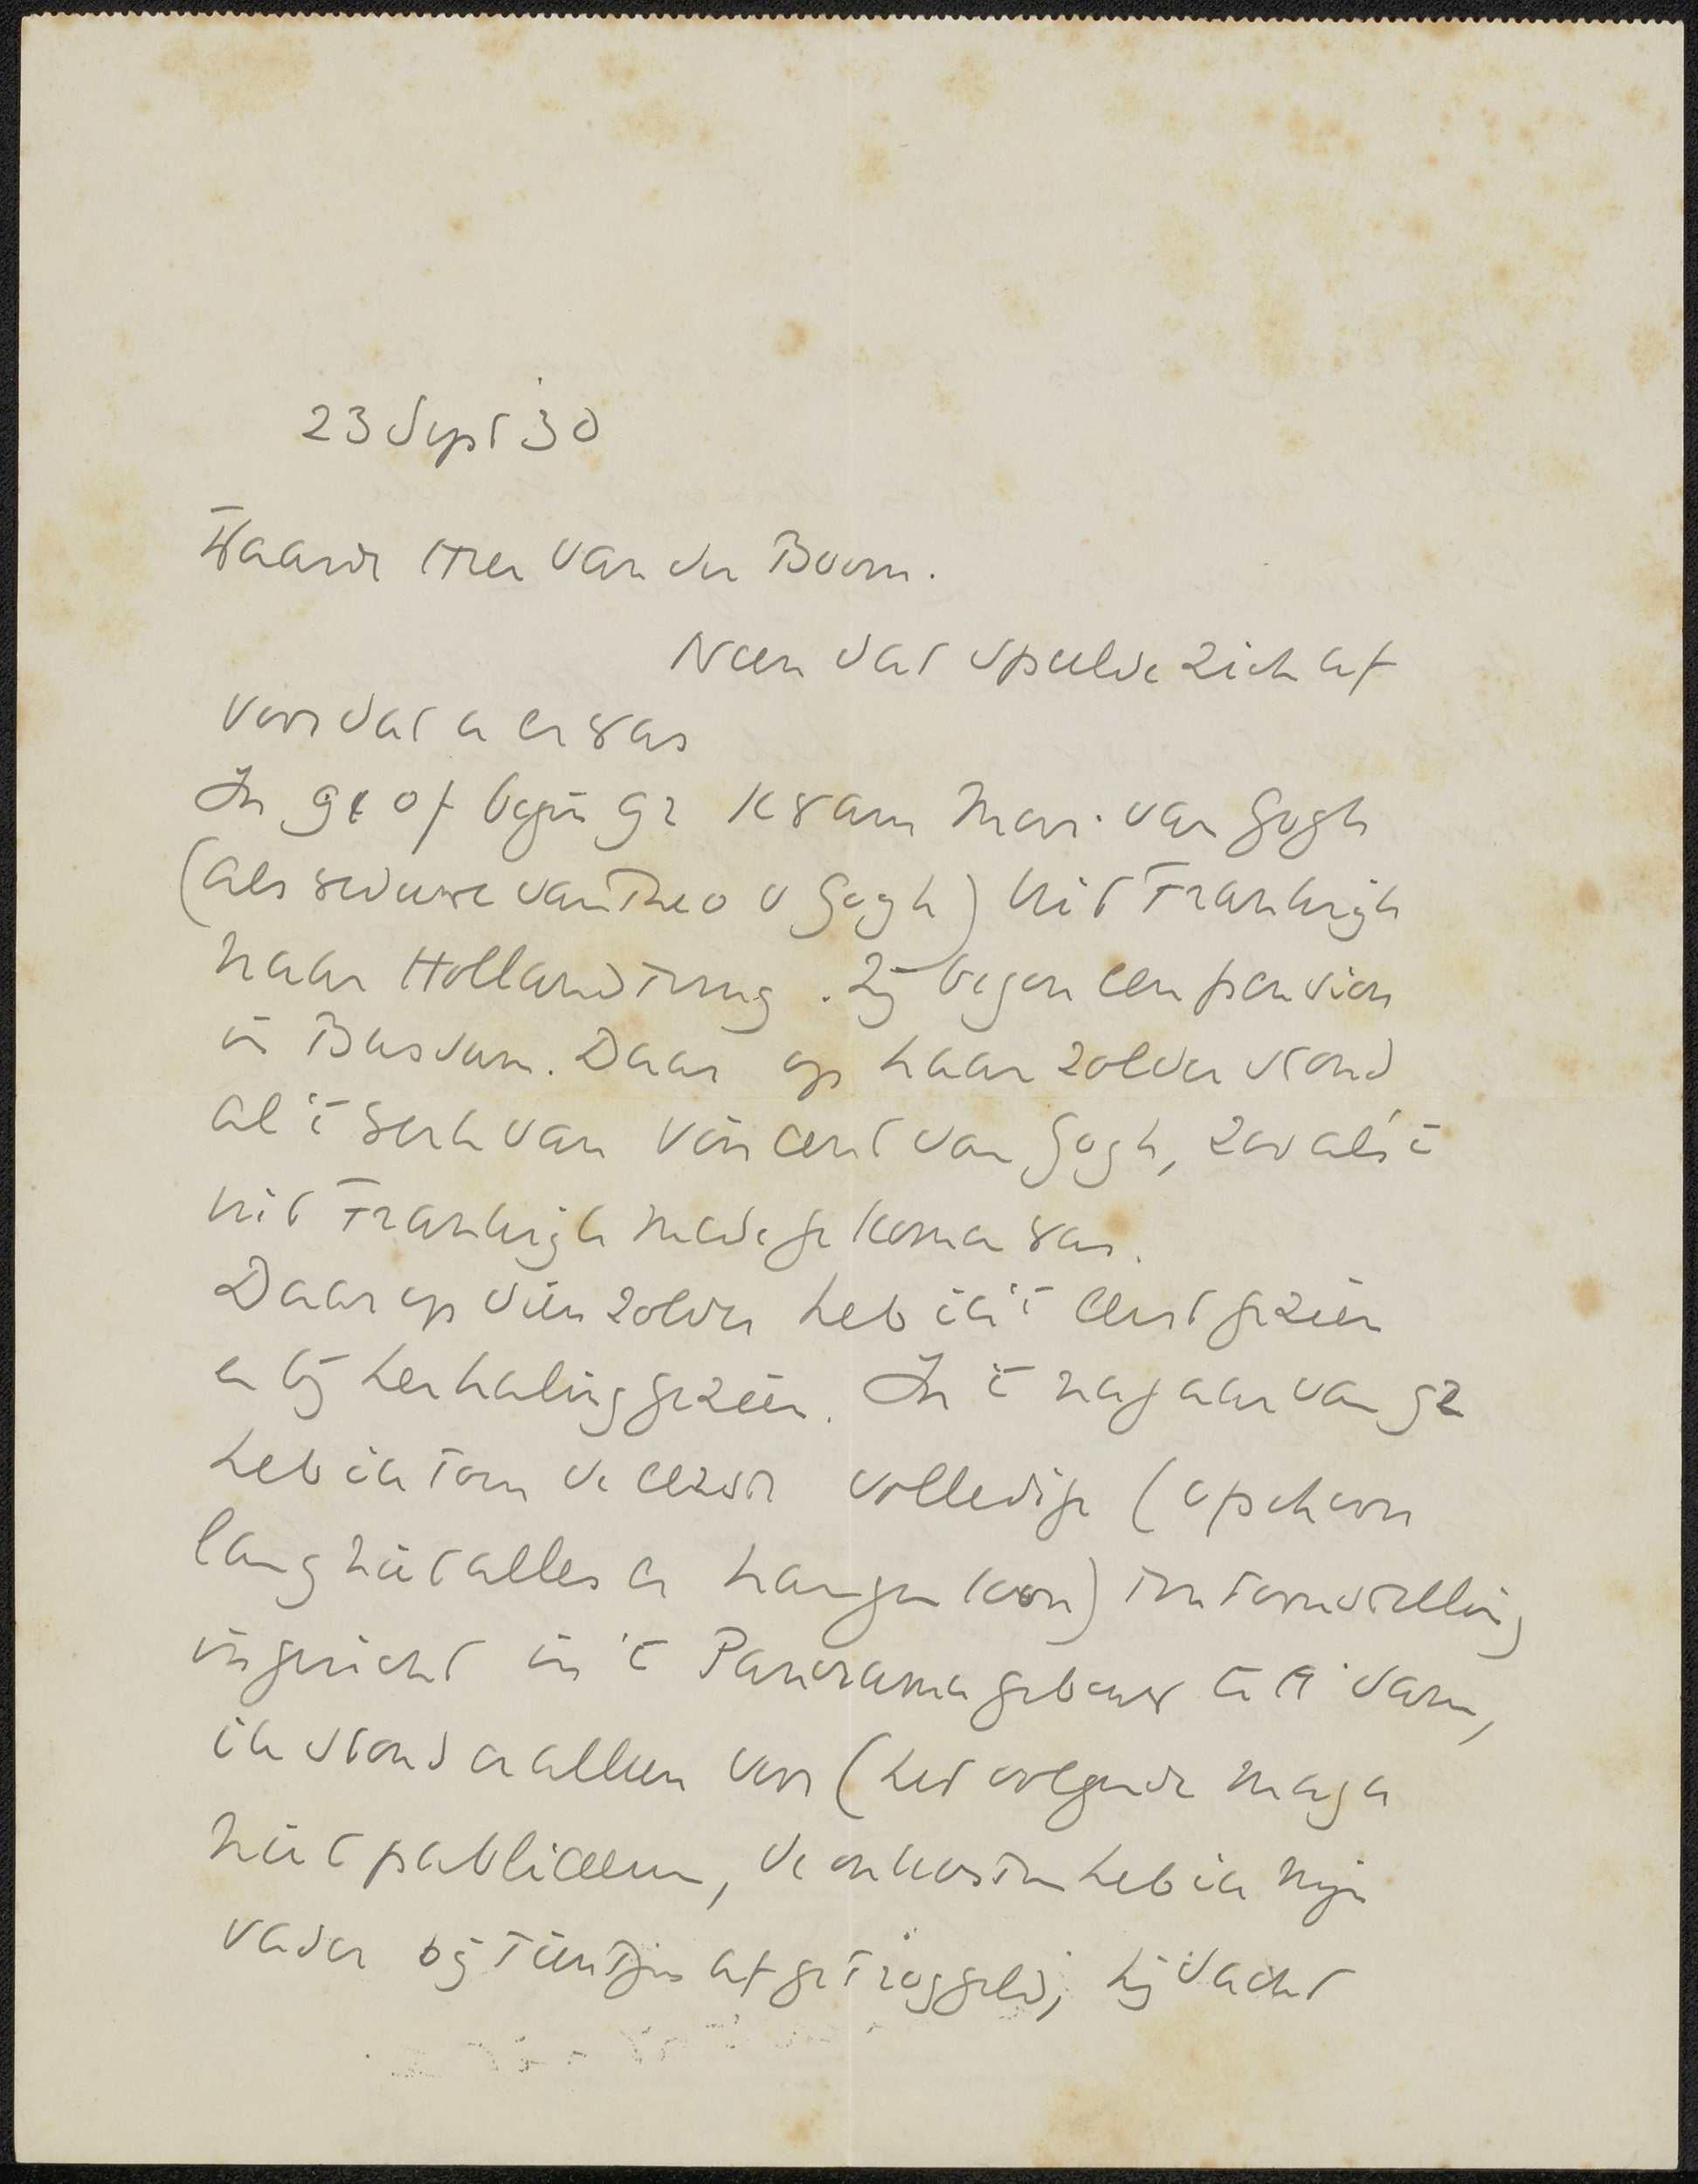 23 Sept 30
Waarde Heer Van der Boom.
Neen dat speelde zich af
voor dat u er was
In 91 of begin 92 kwam Mevr. van Gogh
(als weduwe van Theo v Gogh) uit Frankrijk
naar Holland terug. Zij begon een pension
in Bussum. Daar op haar zolder stond
al 't werk van Vincent van Gogh, zooals 't
uit Frankrijk medegekomen was.
Daar op dien zolder heb ik 't eerst gezien
en bij herhaling gezien. In 't najaar van 92
heb ik toen de eerste volledige (ofschoon
lang niet alles er hangen kon) tentoonstelling
ingericht in 't Panoramagebouw te A'dam,
ik stond er alleen voor (het volgende mag u
niet publiceeren, de onkosten heb ik mijn
vader bij tientjes afgetroggeld, hij dacht